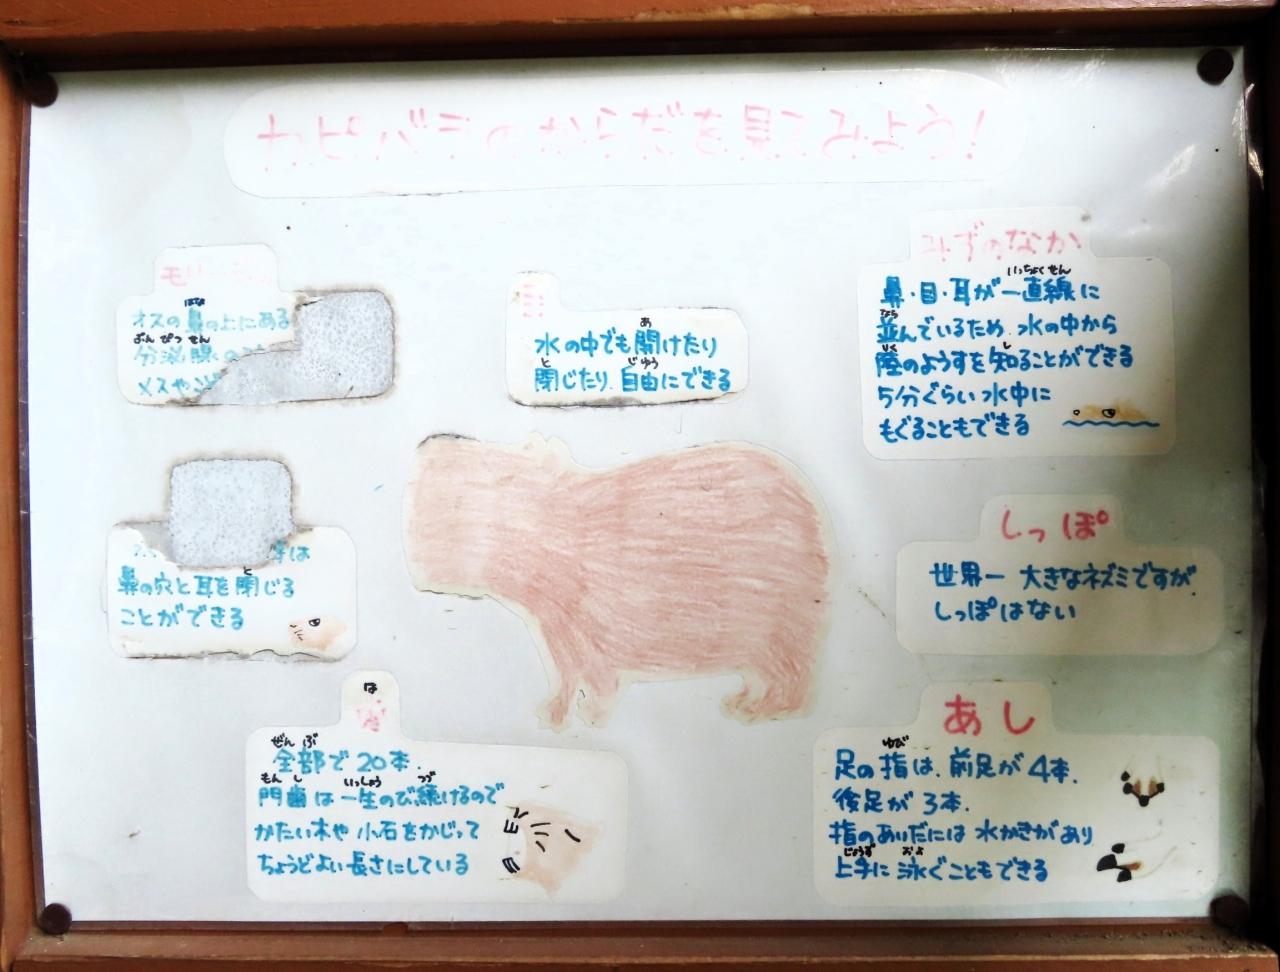 カピバラのからだを見てみよう!
モリ
はな
オスの鼻の上にある
ぶんぴつせん
分泌腺の
メスやこ
耳
あ
水の中でも開けたり
と じゆう
閉じたり、自由にできる
みずのなか
いっちょくせん
鼻・目・耳が一直線に
なら
並んでいるため、水の中から
りく し
陸のようすを知ることができる
5分くらい水中に
もぐることもできる
は
と
鼻の穴と耳を閉じる
ことができる
しっぽ
世界一 大きなネズミですが、
しっぽはない
は
歯
ぜんぶ
全部で20本.
もんし いっしょう つづ
門歯は一生のび続けるので
かたい木や小石をかじって
ちょうどよい長さにしている
あし
ゆび
足の指は、前足が4本.
後足が3本.
指のあいだには水かきがあり
じょうず およ
上手に泳ぐこともできる